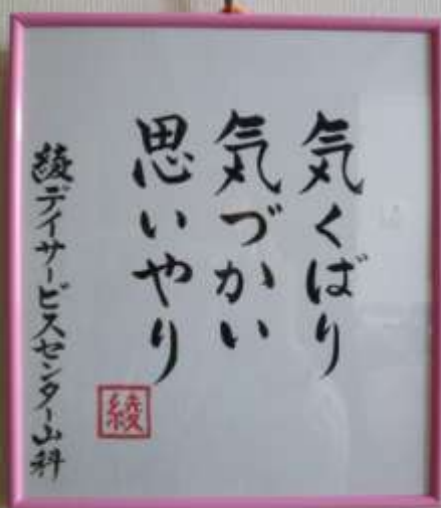 気くばり
気づかい
思いやり
綾デイサービスセンター山科
綾